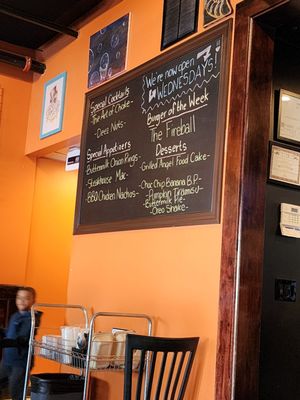 Special Cocktails
-The Art of Choke-
-Deez Nuts-
Special Appetizers
Buttermilk Onion Rings
-Steakhouse Mac-
BBQ Chicken Nachos-
We're now open
WEDNESDAYS!
Burger of the Week
The Fireball
Desserts
-Grilled Angel Food Cake-
-Choc Chip Banana B.P.-
-Pumpkin Tiramisu-
-Buttermilk Pie-
-Oreo Shake-